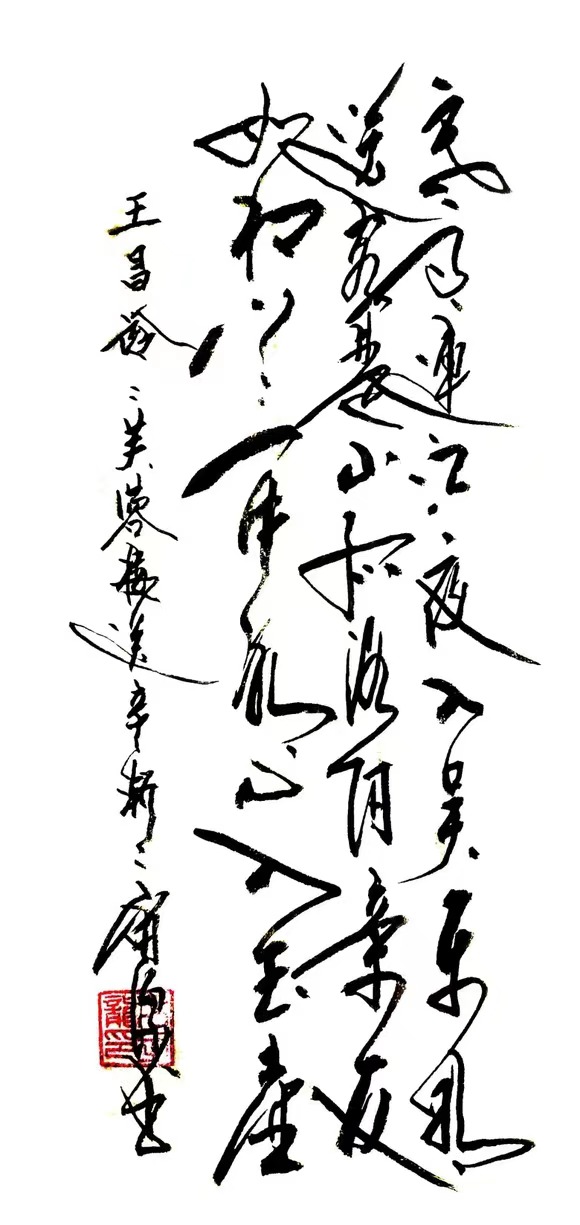 寒雨連江夜入吴平明
送客楚山孤洛阳亲友
如相问一片冰心在玉壶
王昌龄芙蓉楼送辛渐 书